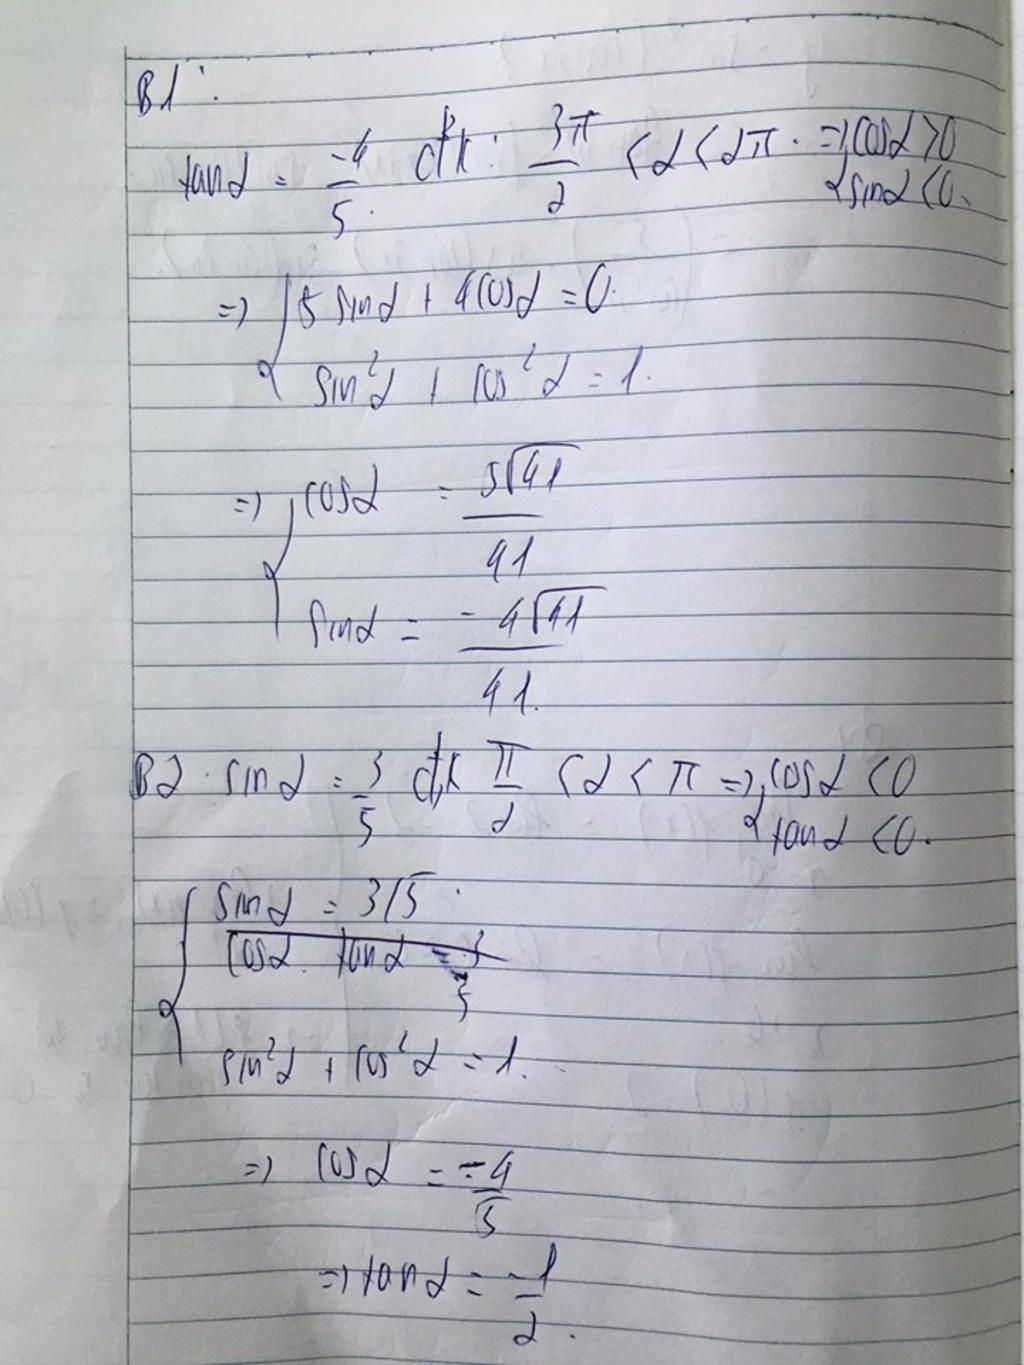 B1:
tanα = -4/5 đk: 3π/2 < α < 2π. => { cosα > 0
sinα < 0.
=> { 5 sinα + 4cosα = 0.
sin²α + cos²α = 1.
=> { cosα = 5√41/41
sinα = -4√41/41.
B2. sinα = 3/5 đk π/2 < α < π => { cosα < 0
tanα < 0.
{ sinα = 3/5.
cosα . tanα = 3/5
sin²α + cos²α = 1.
=> cosα = -4/5
=> tanα = -1/2.